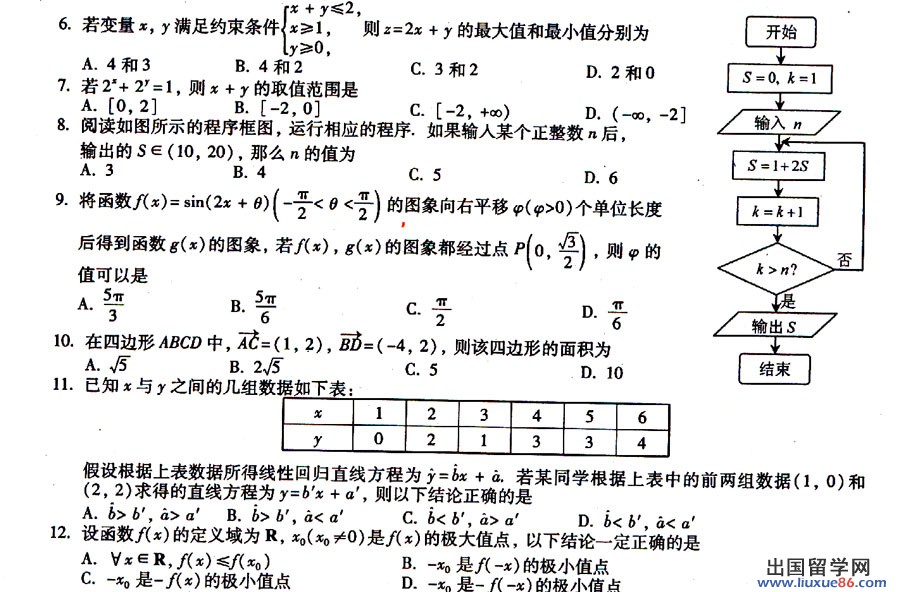 6. 若变量x,y满足约束条件{x+y≤2, x≥1, y≥0, 则z=2x+y的最大值和最小值分别为
A. 4和3 B. 4和2 C. 3和2 D. 2和0
7. 若2ˣ+2ʸ=1,则x+y的取值范围是
A. [0,2] B. [-2,0] C. [-2,+∞) D. (-∞,-2]
8. 阅读如图所示的程序框图,运行相应的程序. 如果输入某个正整数n后,
输出的S∈(10,20),那么n的值为
A. 3 B. 4 C. 5 D. 6
9. 将函数f(x)=sin(2x+θ)(-π/2<θ<π/2)的图象向右平移φ(φ>0)个单位长度
后得到函数g(x)的图象,若f(x),g(x)的图象都经过点P(0,√3/2),则φ的
值可以是
A. 5π/3 B. 5π/6 C. π/2 D. π/6
10. 在四边形ABCD中,AC→=(1,2),BD→=(-4,2),则该四边形的面积为
A. √5 B. 2√5 C. 5 D. 10
11. 已知x与y之间的几组数据如下表:
x 1 2 3 4 5 6
y 0 2 1 3 3 4
假设根据上表数据所得线性回归直线方程为ŷ=b̂x+â. 若某同学根据上表中的前两组数据(1,0)和
(2,2)求得的直线方程为y=b′x+a′,则以下结论正确的是
A. b̂>b′,â>a′ B. b̂>b′,â<a′ C. b̂<b′,â>a′ D. b̂<b′,â<a′
12. 设函数f(x)的定义域为R,x₀(x₀≠0)是f(x)的极大值点,以下结论一定正确的是
A. ∀x∈R,f(x)≤f(x₀) B. -x₀是f(-x)的极小值点
C. -x₀是-f(x)的极小值点 D. -x₀是-f(-x)的极小值点
开始
S=0, k=1
输入n
S=1+2S
k=k+1
k>n?
否
是
输出S
结束
出国留学网
www.liuxue86.com